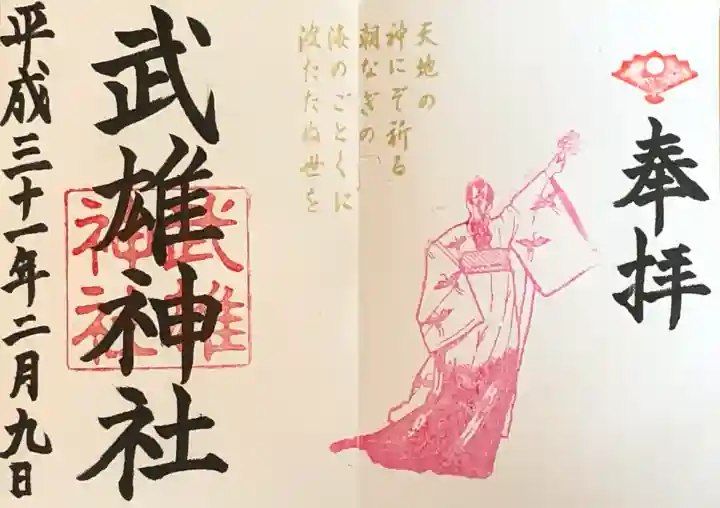 奉拝
天地の
神にぞ祈る
朝なぎの
海のごとくに
波たたぬ世を
武雄神社
武雄
神社
平成三十一年二月九日